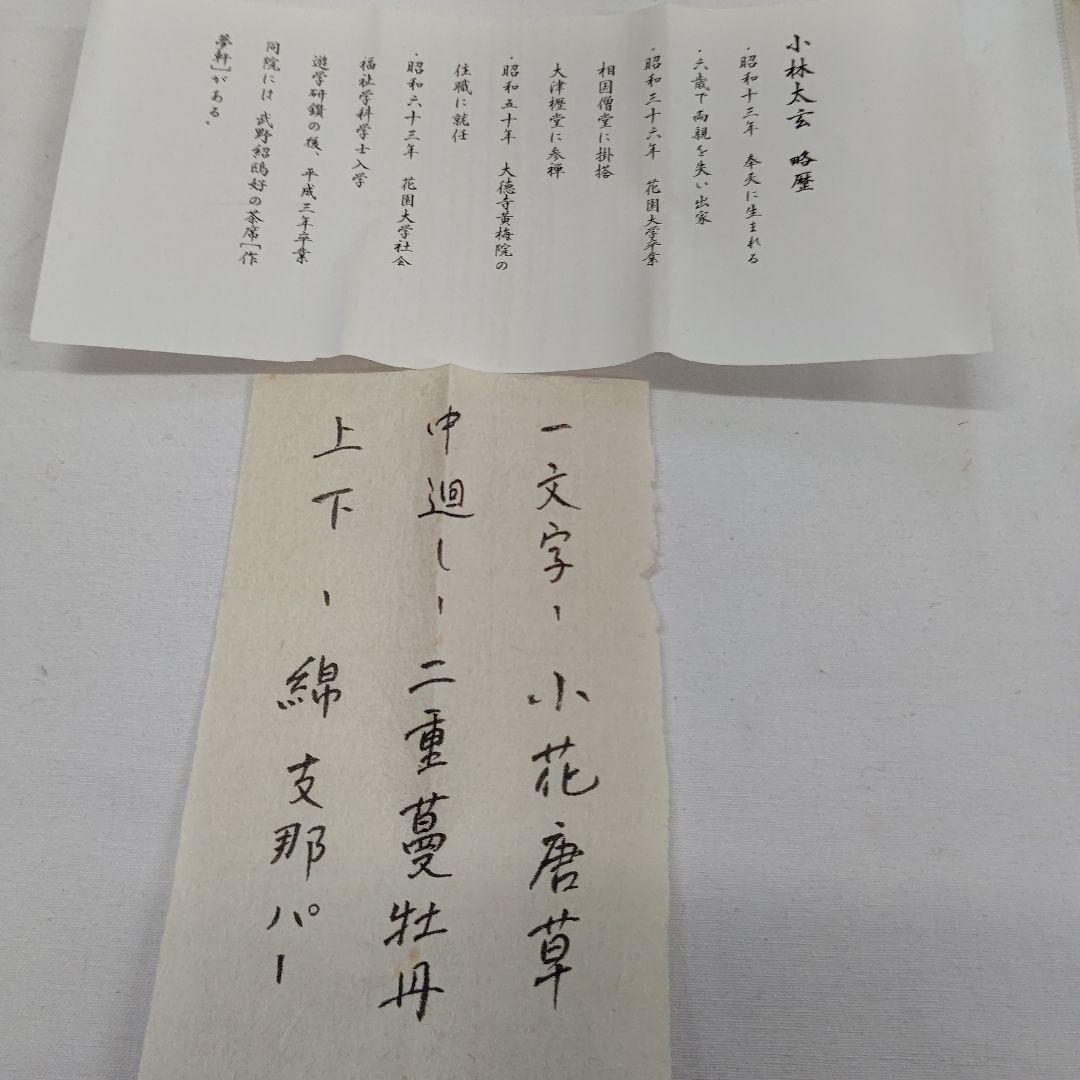 小林太玄 略歴
・昭和十三年 奉天に生まれる
・六歳で両親を失い出家
・昭和三十六年 花園大学卒業
相国僧堂に掛搭
大津櫪堂に参禅
・昭和五十年 大徳寺黄梅院の
住職に就任
・昭和六十三年 花園大学社会
福祉学科学士入学
遊学研鑽の後、平成三年卒業
同院には 武野紹鴎好の茶席「作
夢軒」がある。
一文字ー 小花唐草
中廻しー 二重蔓牡丹
上下 ー 綿支那パー